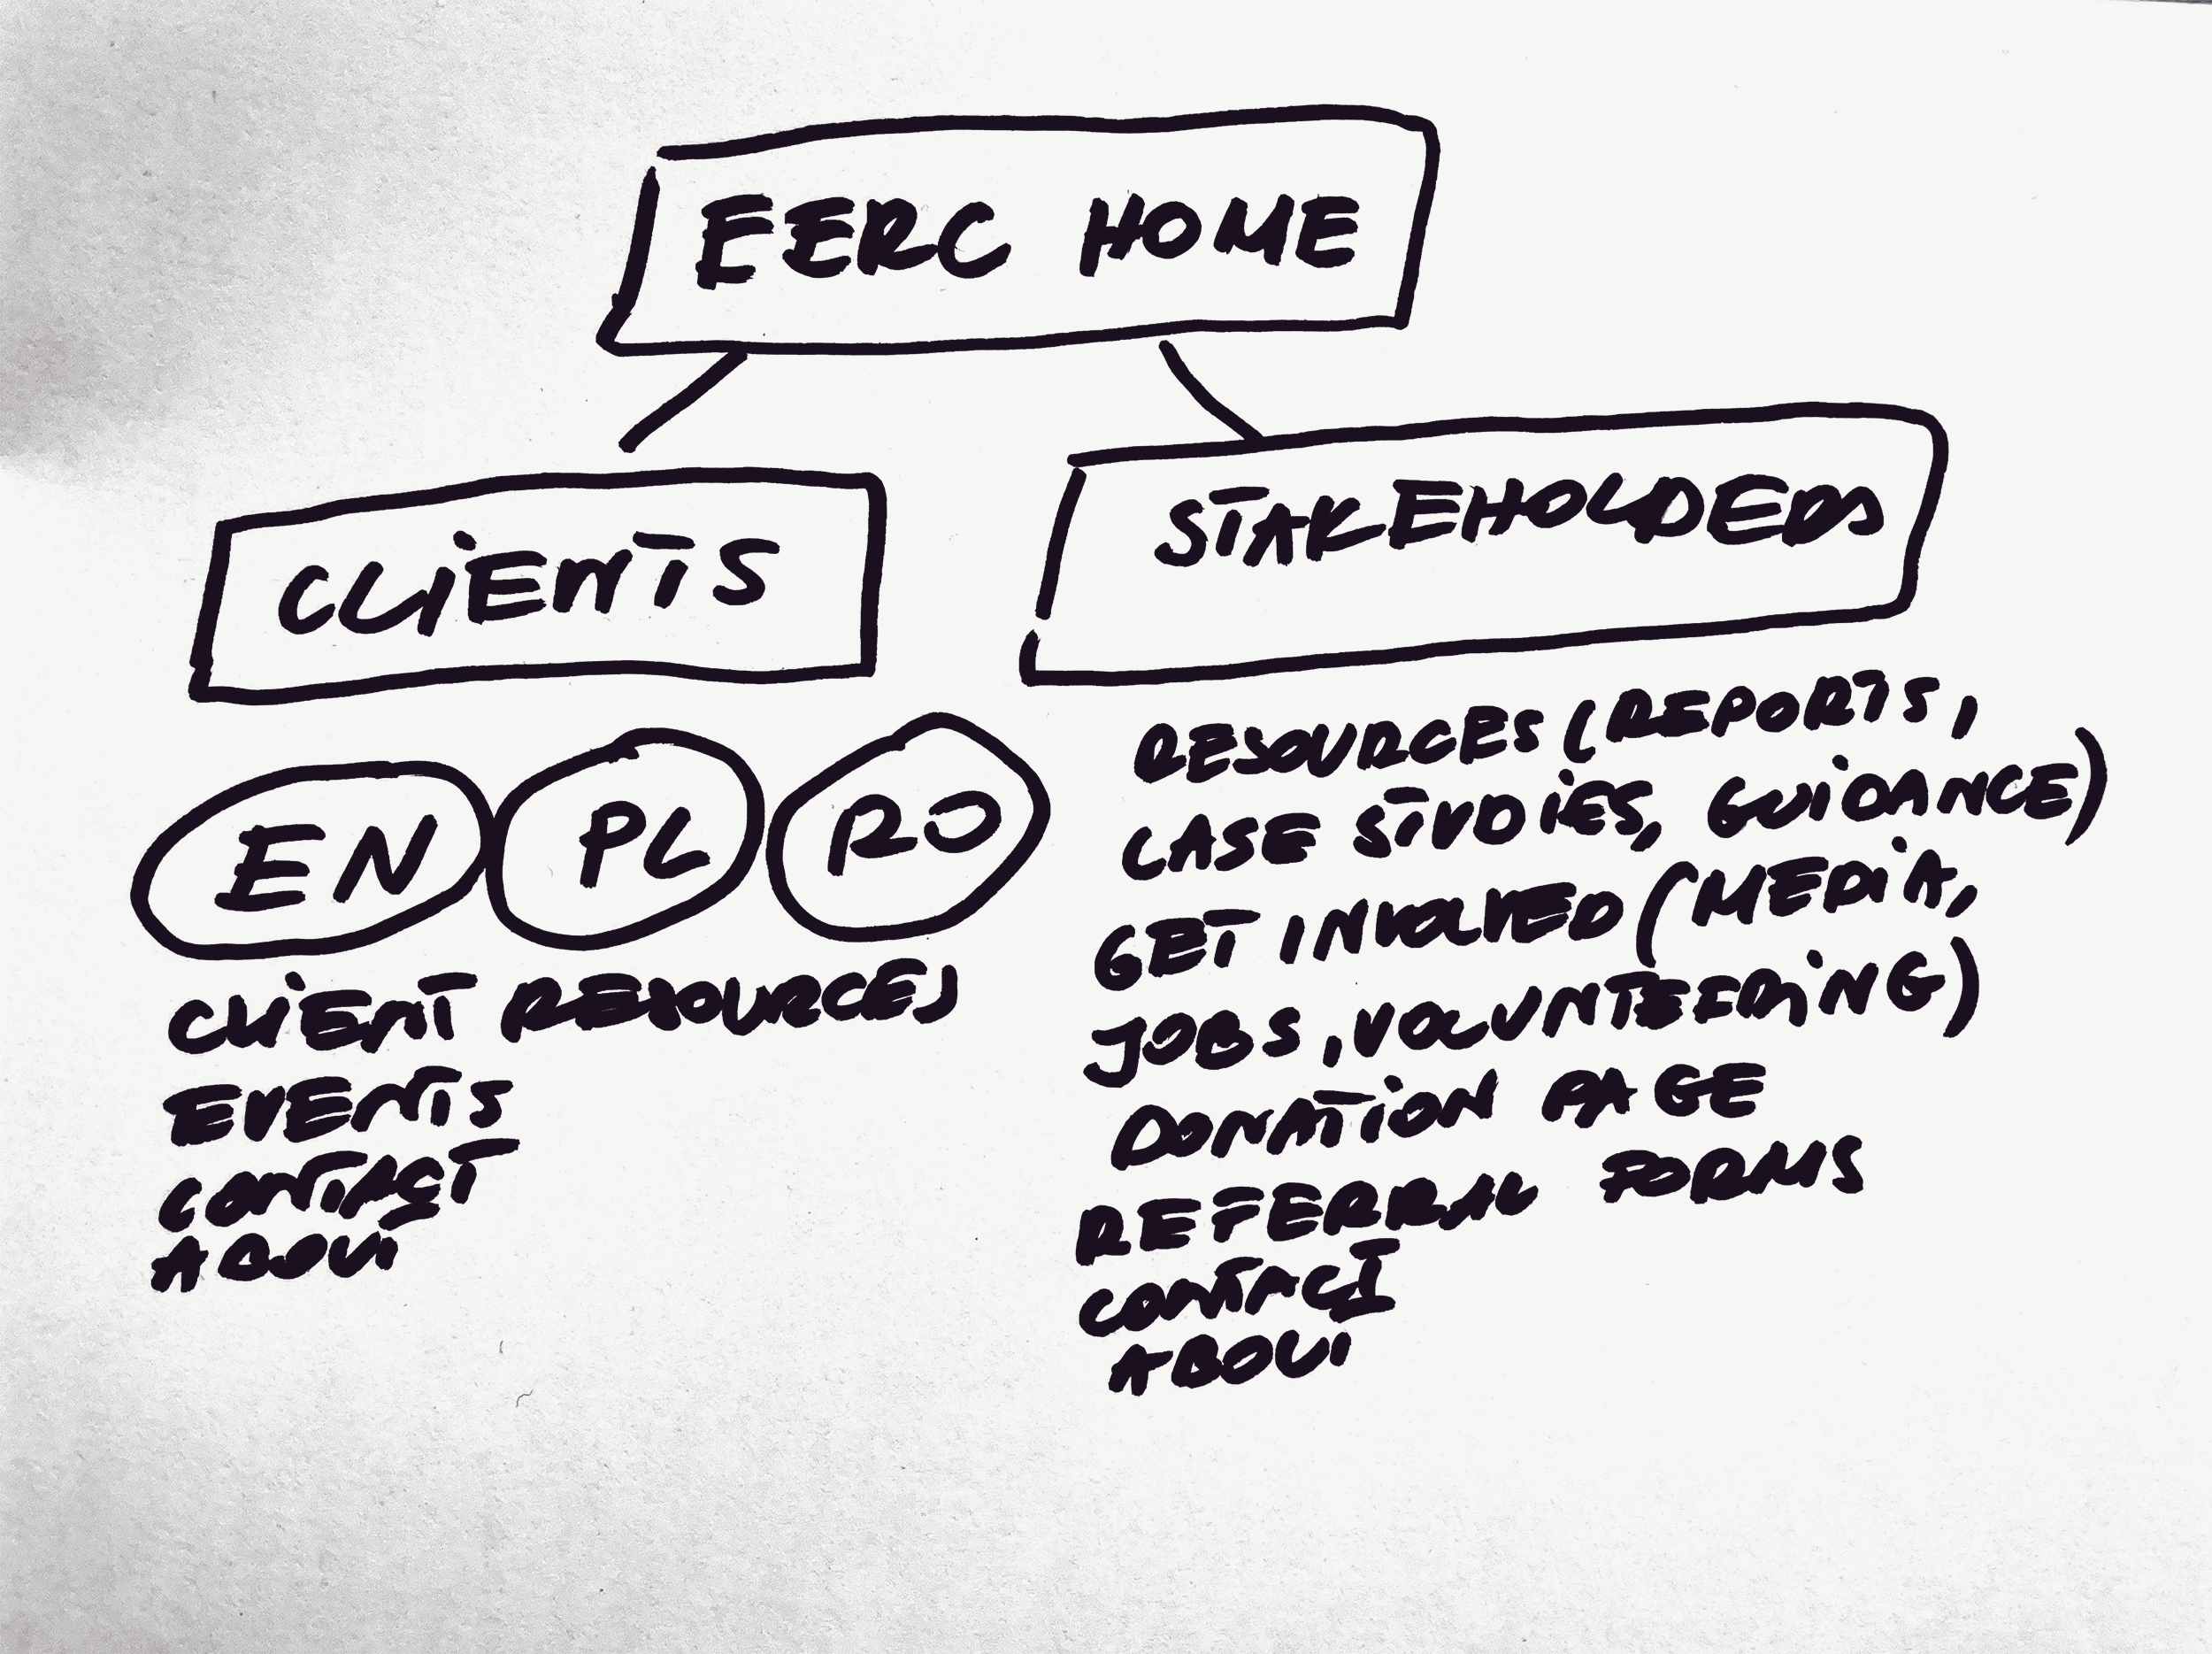 EERC HOME
CLIENTS
STAKEHOLDERS
EN PL RO
CLIENT RESOURCES
EVENTS
CONTACT
ABOUT
RESOURCES (REPORTS,
CASE STUDIES, GUIDANCE)
GET INVOLVED (MEDIA,
JOBS, VOLUNTEERING)
DONATION PAGE
REFERRAL FORMS
CONTACT
ABOUT